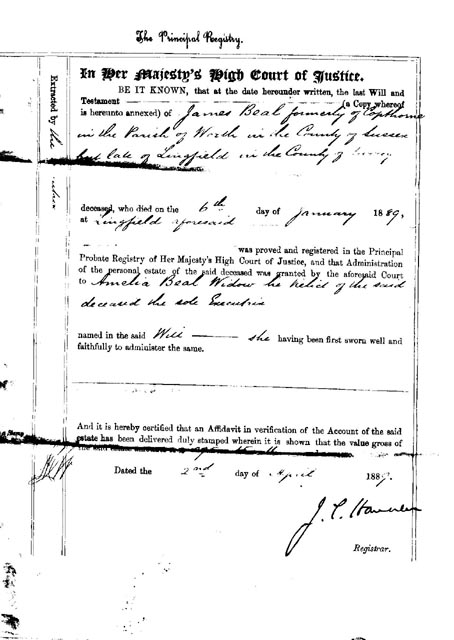 The Principal Registry.
In Her Majesty's High Court of Justice.
BE IT KNOWN, that at the date hereunder written, the last Will and
Testament (a Copy whereof
is hereunto annexed) of James Beal formerly of Copthorne
in the Parish of Worth in the County of Sussex
but late of Lingfield in the County of Surrey
deceased, who died on the 6th day of January 1889,
at Lingfield aforesaid
was proved and registered in the Principal
Probate Registry of Her Majesty's High Court of Justice, and that Administration
of the personal estate of the said deceased was granted by the aforesaid Court
to Amelia Beal Widow the Relict of the said
deceased the sole Executrix
named in the said Will she having been first sworn well and
faithfully to administer the same.
And it is hereby certified that an Affidavit in verification of the Account of the said
estate has been delivered duly stamped wherein it is shown that the value gross of
the said estate
Dated the 2nd day of April 1889.
J. C.
Registrar.
Extracted by the